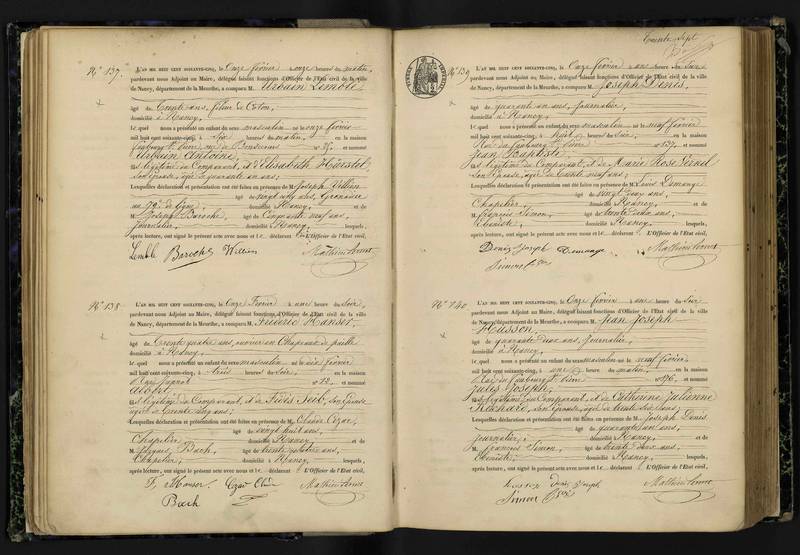 Trente Sept
N° 137.
L'AN MIL HUIT CENT SOIXANTE-CINQ, le Onze février à onze heures du matin,
pardevant nous Adjoint au Maire, délégué faisant fonctions d'Officier de l'État civil de la ville
de Nancy, département de la Meurthe, a comparu M. Urbain Lemblé
âgé de Trente ans, fileur de Coton,
domicilié à Nancy,
lequel nous a présenté un enfant du sexe masculin né le onze février
mil huit cent soixante-cinq, à six heures du matin, en la maison
faubourg St Pierre, rue de N° 35, et nommé
Urbain Antoine,
fils légitime du Comparant, et d'Elisabeth
son Epouse, âgée de quarante ans;
Lesquelles déclaration et présentation ont été faites en présence de M. Joseph Willien
âgé de vingt ans, Grenadier
au de ligne, domicilié à Nancy, et de
M. Joseph Baroche, âgé de Cinquante neuf ans,
journalier, domicilié à Nancy, lesquels,
après lecture, ont signé le présent acte avec nous et le déclarant. L'Officier de l'État civil,
Lemblé Baroche Willien
N° 138.
L'AN MIL HUIT CENT SOIXANTE-CINQ, le Onze Février à une heure du Soir,
pardevant nous Adjoint au Maire, délégué faisant fonctions d'Officier de l'État civil de la ville
de Nancy, département de la Meurthe, a comparu M. Fréderic Hanser,
âgé de Trente quatre ans, ouvrier en Chapeaux de paille
domicilié à Nancy,
lequel nous a présenté un enfant du sexe masculin né le dix février
mil huit cent soixante-cinq, à trois heures du Soir, en la maison
N° 12, et nommé
fils légitime du Comparant, et de
âgée de Trente cinq ans;
Lesquelles déclaration et présentation ont été faites en présence de M. Claude Cezar,
âgé de vingt huit ans,
Chapelier, domicilié à Nancy et de
M. Jacques Bach, âgé de trente ans,
Chapelier, domicilié à Nancy, lesquels,
après lecture, ont signé le présent acte avec nous et le déclarant. L'Officier de l'État civil,
F. Hanser Cezar Claude
Bach
N° 139
L'AN MIL HUIT CENT SOIXANTE-CINQ, le Onze février à une heure du Soir
pardevant nous Adjoint au Maire, délégué faisant fonctions d'Officier de l'État civil de la ville
de Nancy, département de la Meurthe, a comparu M. Joseph Denis,
âgé de quarante un ans, Journalier,
domicilié à Nancy,
lequel nous a présenté un enfant du sexe masculin né le neuf février
mil huit cent soixante-cinq, à huit heures du Soir, en la maison
Rue du faubourg St Pierre N° 137, et nommé
Jean Baptiste,
fils légitime du Comparant, et de Marie Rose
son Epouse, âgée de trente neuf ans;
Lesquelles déclaration et présentation ont été faites en présence de M. Louis Demange
âgé de vingt deux ans,
Chapelier, domicilié à Nancy et de
M. françois Simon, âgé de trente deux ans,
Ebéniste, domicilié à Nancy, lesquels,
après lecture, ont signé le présent acte avec nous et le déclarant. L'Officier de l'État civil,
Denis Joseph Demange
Simon fçois
N° 140
L'AN MIL HUIT CENT SOIXANTE-CINQ, le Onze février à une heure du Soir
pardevant nous Adjoint au Maire, délégué faisant fonctions d'Officier de l'État civil de la ville
de Nancy, département de la Meurthe, a comparu M. Jean Joseph
Husson,
âgé de quarante deux ans, Journalier,
domicilié à Nancy,
lequel nous a présenté un enfant du sexe masculin né le neuf février
mil huit cent soixante-cinq, à une heure du matin, en la maison
Rue du faubourg St Pierre N° 176, et nommé
Jules Joseph,
fils légitime du Comparant, et de Catherine Julienne
son Epouse, âgée de trente six ans;
Lesquelles déclaration et présentation ont été faites en présence de M. Joseph Denis
âgé de quarante un ans,
journalier, domicilié à Nancy, et de
M. françois Simon, âgé de trente deux ans,
Ebéniste, domicilié à Nancy, lesquels,
après lecture, ont signé le présent acte avec nous et le déclarant. L'Officier de l'État civil,
husson Denis Joseph
Simon fçois